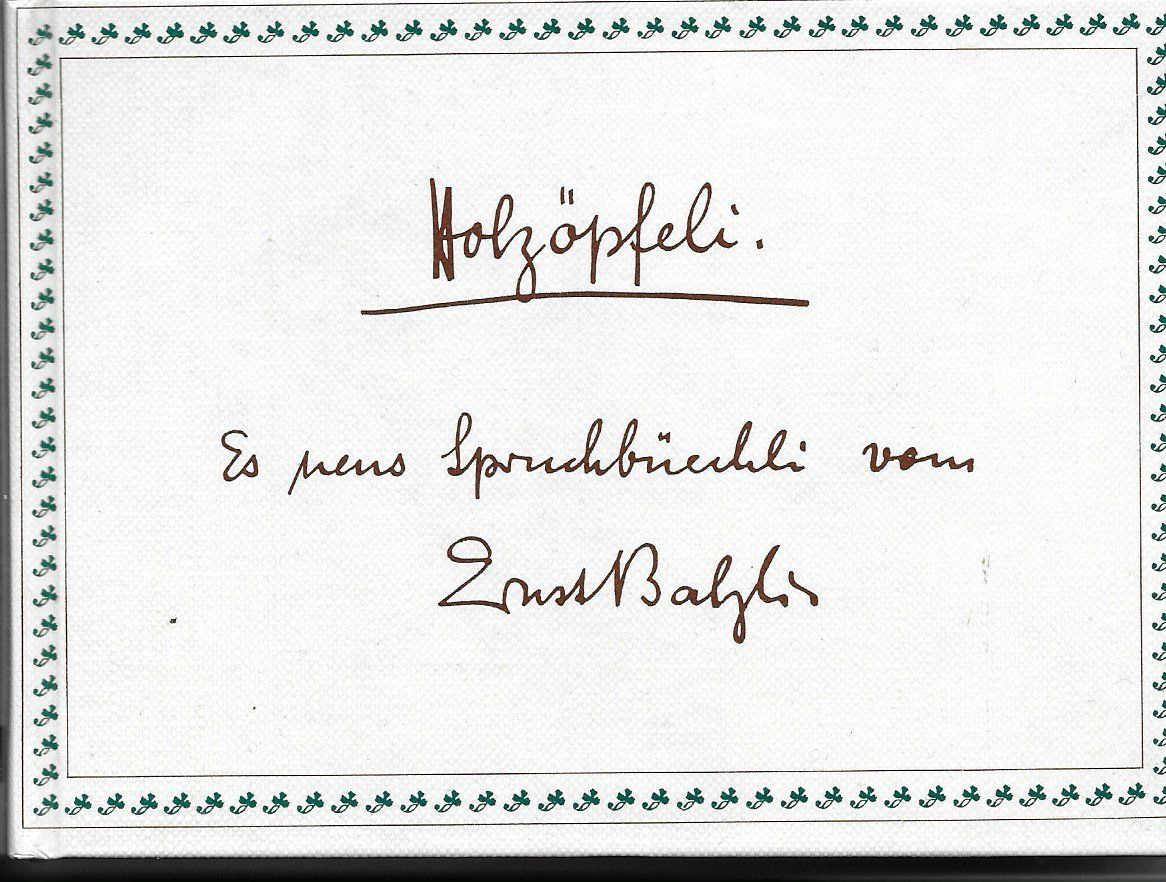 Holzöpfeli.
Es neus Spruchbüechli vom
Ernst Balzli